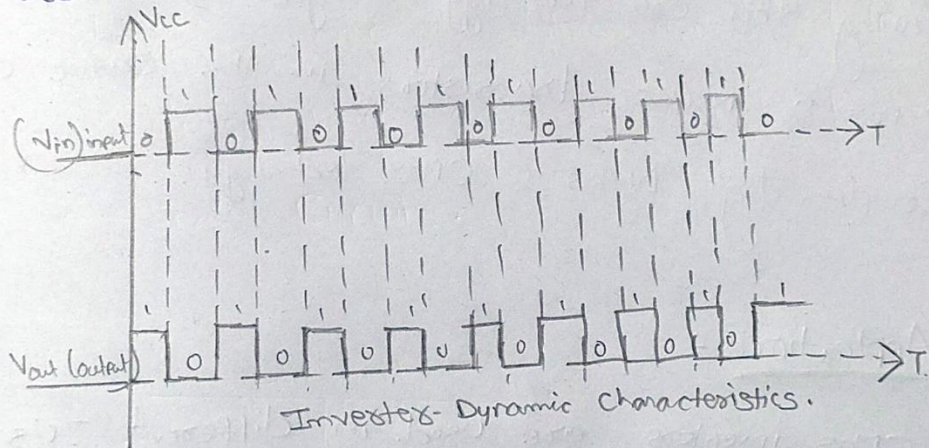 Vcc
(Vin) input 0 1 0 1 0 1 0 1 0 1 0 1 0 1 0 1 0 T
Vout (output) 1 0 1 0 1 0 1 0 1 0 1 0 1 0 1 0 1 T
Inverter- Dynamic characteristics.